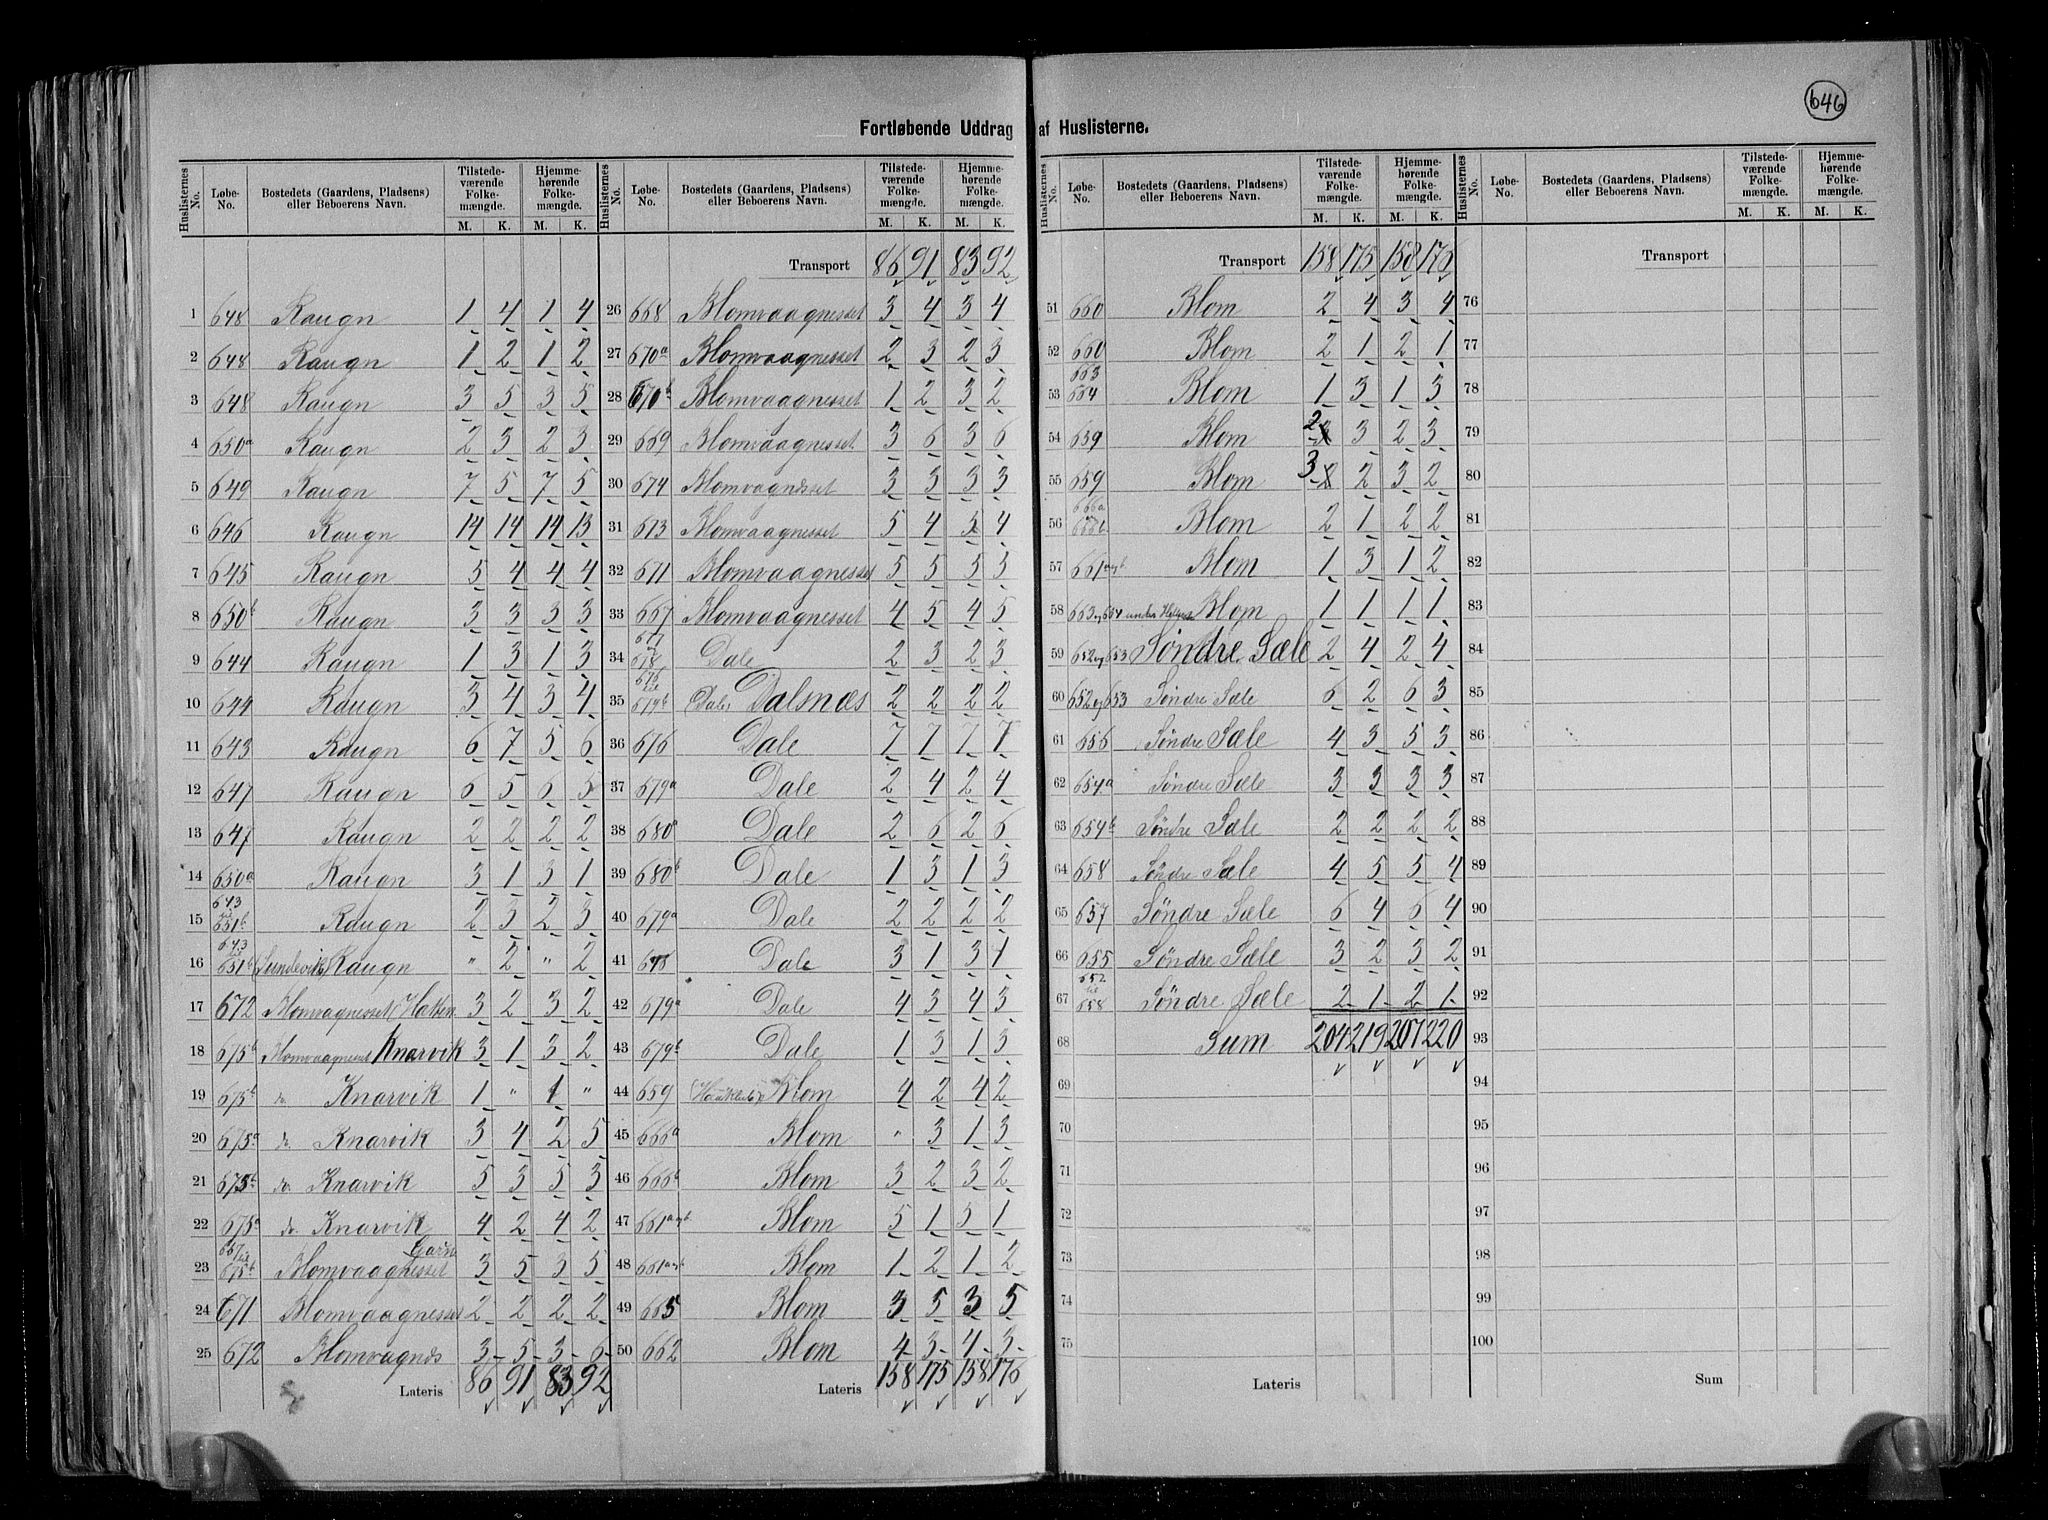 646
Fortløbende Uddrag af Huslisterne.
Huslisternes No. Løbe-No. Bostedets (Gaardens, Pladsens) eller Beboerens Navn. Tilstede-værende Folke-mængde. M. K. Hjemme-hørende Folke-mængde. M. K.
1 648 Raugn 1 4 1 4
2 648 Raugn 1 2 1 2
3 648 Raugn 3 5 3 5
4 650a Raugn 2 3 2 3
5 649 Raugn 7 5 7 5
6 646 Raugn 14 14 14 13
7 645 Raugn 5 4 4 4
8 650b Raugn 3 3 3 3
9 644 Raugn 1 3 1 3
10 644 Raugn 3 4 3 4
11 643 Raugn 6 7 5 6
12 647 Raugn 6 5 6 5
13 647 Raugn 2 2 2 2
14 650a Raugn 3 1 3 1
15 643 til 651b Raugn 2 3 2 3
16 643 651b (Sundevik) Raugn " 2 " 2
17 672 Blomvagnesset (Hatten 3 2 3 2
18 675b Blomvaagnesset Knarvik 3 1 3 2
19 675b do Knarvik 1 " 1 "
20 675a do Knarvik 3 4 2 5
21 675b do Knarvik 5 3 5 3
22 675a do Knarvik 4 2 4 2
23 667 til 675b Blomvaagnesset 3 5 3 5
24 671 Blomvaagnesset 2 2 2 2
25 672 Blomvagnæs 3 5 3 6
Lateris 86 91 83 92
Huslisternes No. Løbe-No. Bostedets (Gaardens, Pladsens) eller Beboerens Navn. Tilstede-værende Folke-mængde. M. K. Hjemme-hørende Folke-mængde. M. K.
Transport 86 91 83 92
26 668 Blomvaagnesset 3 4 3 4
27 670a Blomvaagnesset 2 3 2 3
28 670b Blomvaagnesset 1 2 3 2
29 669 Blomvaagnesset 3 6 3 6
30 674 Blomvagnæsset 3 3 3 3
31 673 Blomvaagnesset 5 4 5 4
32 671 Blomvaagnesset 5 5 5 5
33 667 Blomvaagnesset 4 5 4 5
34 677 og 678 Dale 2 3 2 3
35 676 til 679b (Dale) Dalsnæs 2 2 2 2
36 676 Dale 7 7 7 7
37 679a Dale 2 4 2 4
38 680a Dale 2 6 2 6
39 680b Dale 1 3 1 3
40 679a Dale 2 2 2 2
41 678 Dale 3 1 3 1
42 679a Dale 4 3 4 3
43 679b Dale 1 3 1 3
44 659 Blom 4 2 4 2
45 666a Blom " 3 1 3
46 666b Blom 3 2 3 2
47 661a og b Blom 5 1 5 1
48 661a og b Blom 1 2 1 2
49 665 Blom 3 5 3 5
50 662 Blom 4 3 4 3
Lateris 158 175 158 176
Huslisternes No. Løbe-No. Bostedets (Gaardens, Pladsens) eller Beboerens Navn. Tilstede-værende Folke-mængde. M. K. Hjemme-hørende Folke-mængde. M. K.
Transport 158 175 158 176
51 660 Blom 2 4 3 4
52 660 Blom 2 1 2 1
53 663 664 Blom 1 3 1 3
54 659 Blom 2 3 3 2 3
55 659 Blom 3 2 3 2
56 666a 666b Blom 2 1 2 2
57 661a og b Blom 1 3 1 2
58 663 og 664 under Blom 1 1 1 1
59 652 og 653 Søndre Sæle 2 4 2 4
60 652 og 653 Søndre Sæle 6 2 6 3
61 656 Søndre Sæle 4 3 5 3
62 654a Søndre Sæle 3 3 3 3
63 654b Søndre Sæle 2 2 2 2
64 658 Søndre Sæle 4 5 5 4
65 657 Søndre Sæle 6 4 6 4
66 655 Søndre Sæle 3 2 3 2
67 652 til 658 Søndre Sæle 2 1 2 1
68 Sum 204 219 207 220
69
70
71
72
73
74
75
Lateris
Huslisternes No. Løbe-No. Bostedets (Gaardens, Pladsens) eller Beboerens Navn. Tilstede-værende Folke-mængde. M. K. Hjemme-hørende Folke-mængde. M. K.
Transport
76
77
78
79
80
81
82
83
84
85
86
87
88
89
90
91
92
93
94
95
96
97
98
99
100
Sum